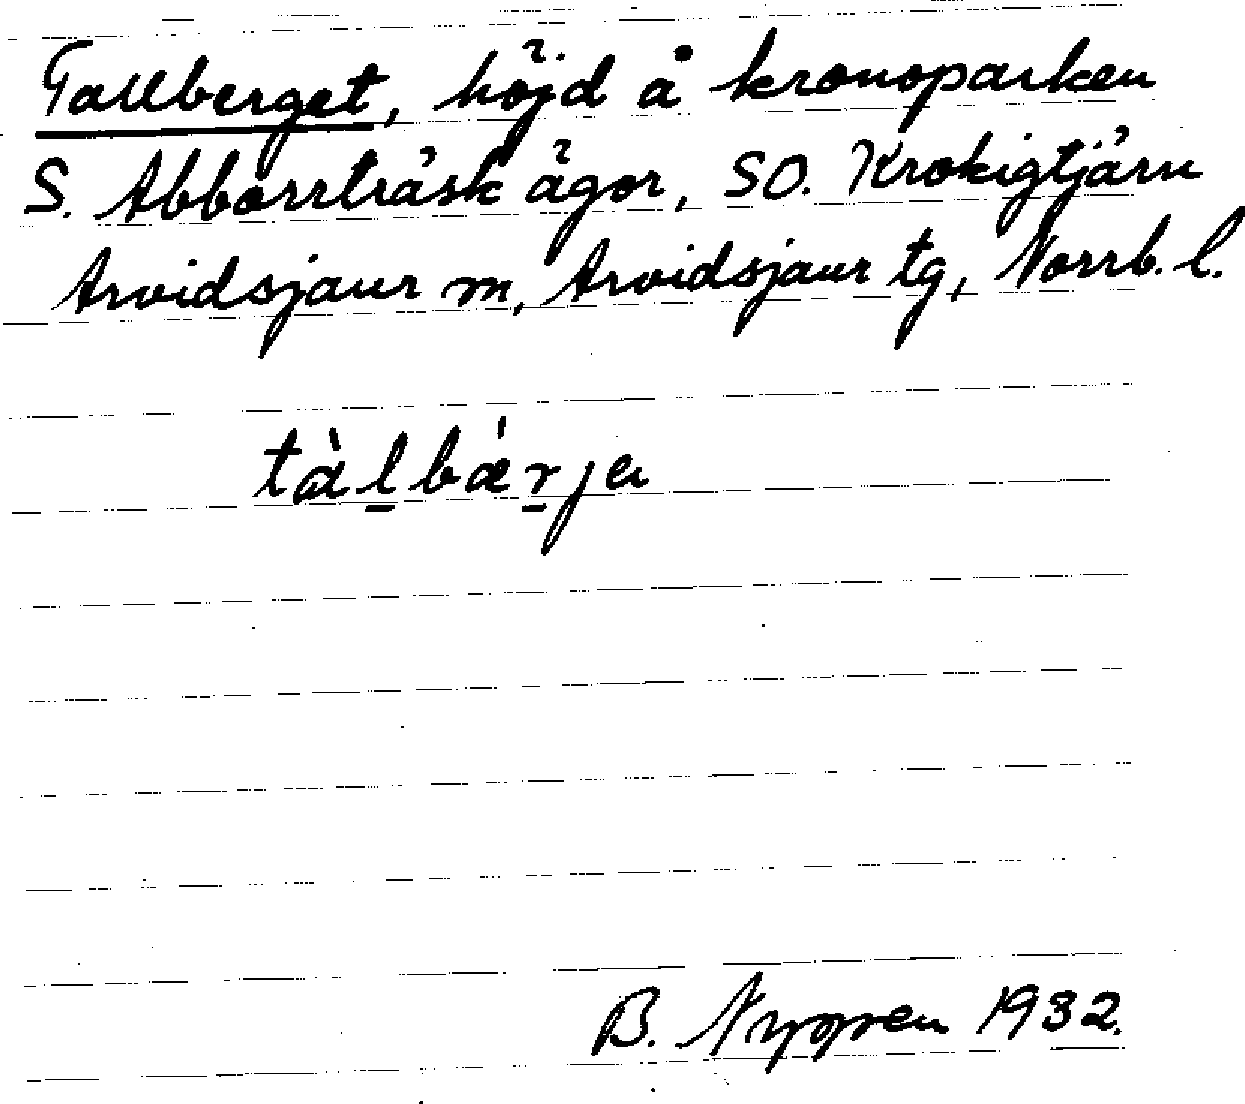 Tallberget, höjd å kronoparken
S. Abborrträsk ägor, SO. Krokigtjärn
Arvidsjaur m, Arvidsjaur tg, Norrb. l.
tàl̲bǽr̲ja
B. Nygren 1932.